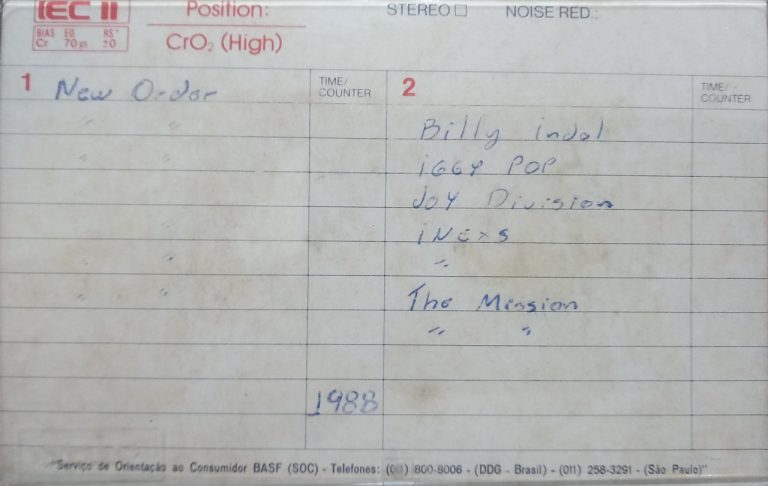 IEC II
Position:
STEREO
NOISE RED.:
BIAS EQ RS*
Cr 70µs ±0
CrO₂ (High)
1
TIME/
COUNTER
2
TIME/
COUNTER
New Order
" "
" "
" "
" "
" "
" "
Billy indol
iGGY POP
JOY Division
iNExs
"
The Mission
" "
1988
"Serviço de Orientação ao Consumidor BASF (SOC) - Telefones: 800-8006 - (DDG - Brasil) - (011) 258-3291 - (São Paulo)"